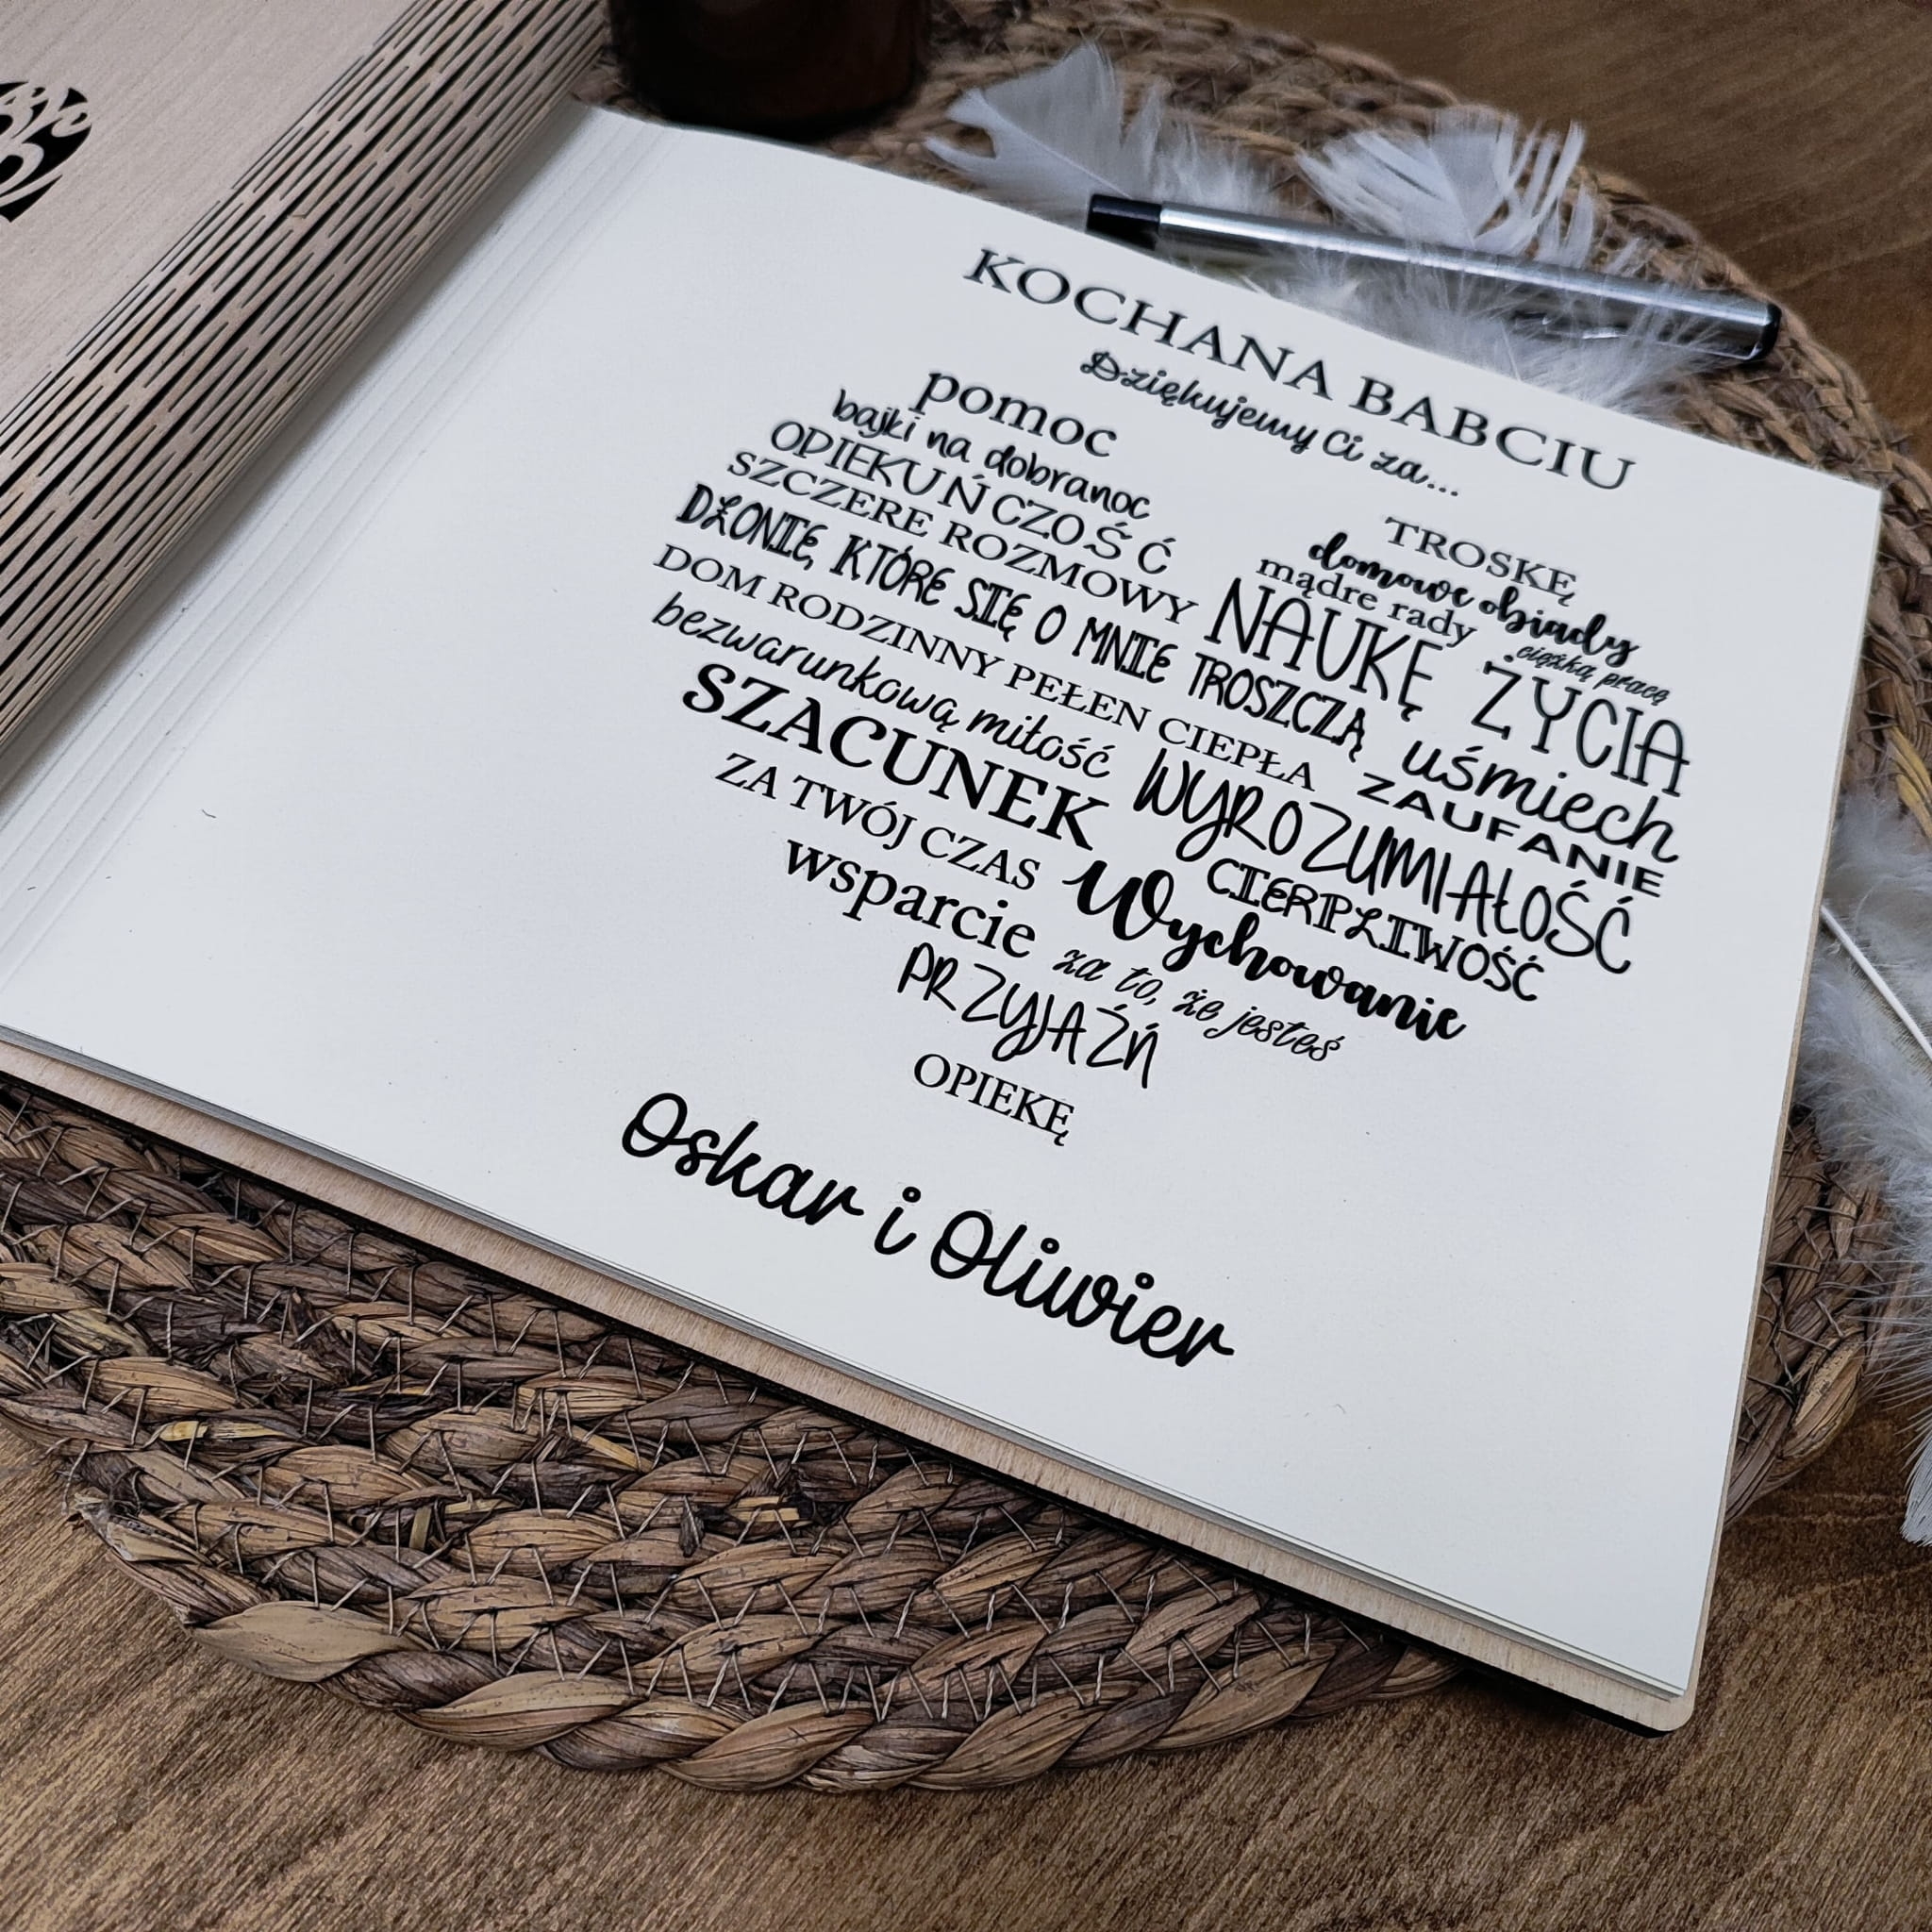 KOCHANA BABCIU
Dziękujemy Ci za...
pomoc
bajki na dobranoc
OPIEKUŃCZOŚĆ
SZCZERE ROZMOWY
TROSKĘ
domowe obiady
mądre rady
ciężką pracę
NAUKĘ ŻYCIA
DŁONIE, KTÓRE SIĘ O MNIE TROSZCZĄ
uśmiech
DOM RODZINNY PEŁEN CIEPŁA
ZAUFANIE
bezwarunkową miłość
WYROZUMIAŁOŚĆ
SZACUNEK
CIERPLIWOŚĆ
ZA TWÓJ CZAS
Wychowanie
wsparcie
za to, że jesteś
PRZYJAŹŃ
OPIEKĘ
Oskar i Oliwier